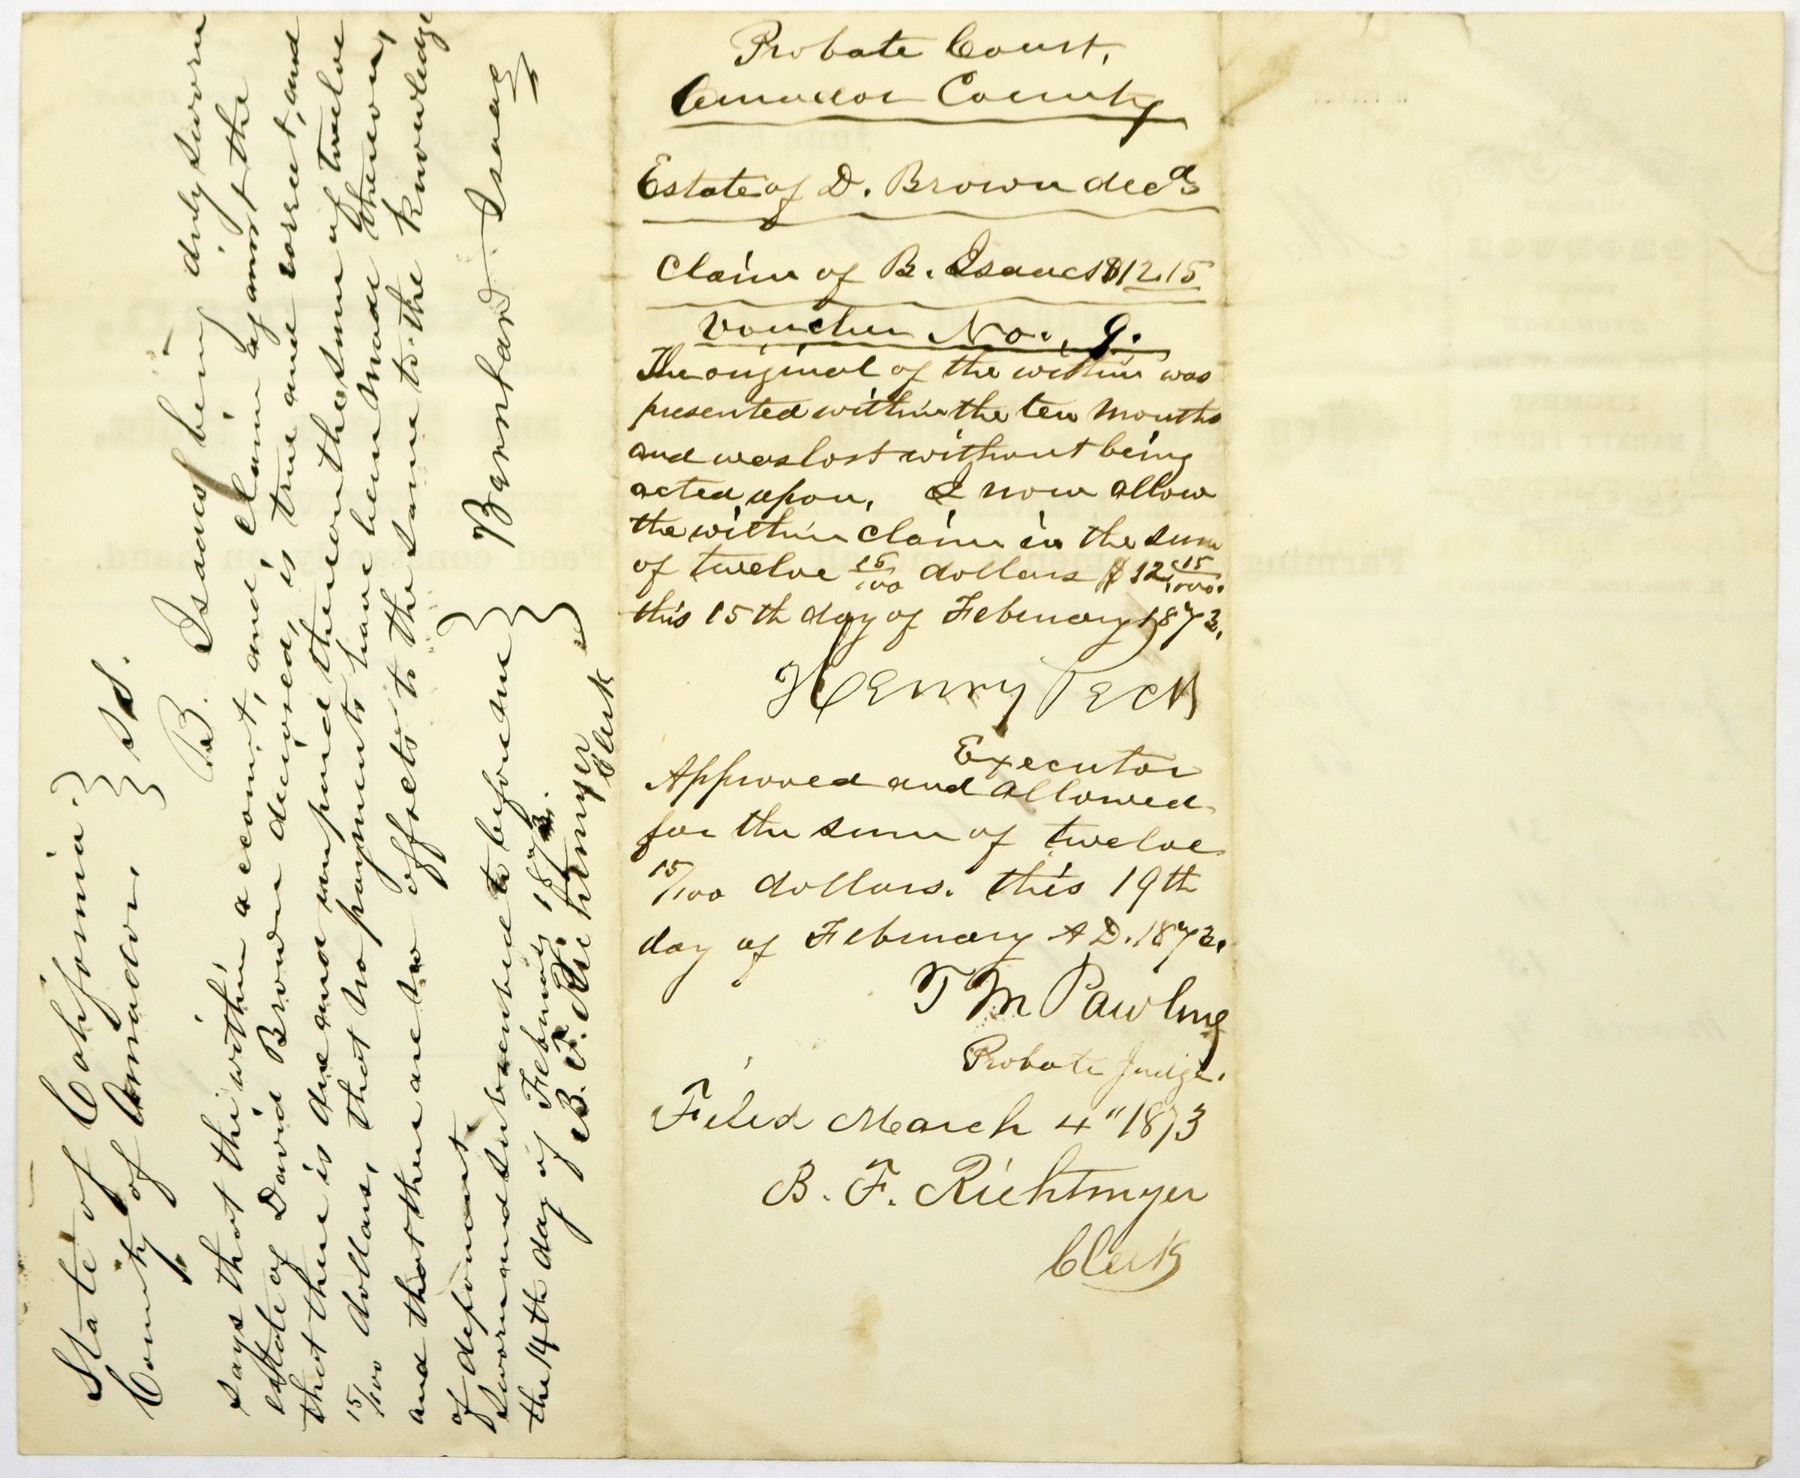 State of California }
County of Amador } ss.
B. Isaacs being duly sworn
says that the within account, and, claim against the
estate of David Brown deceased, is true and correct, and
that there is due and unpaid thereon the sum of twelve
15/100 dollars, that no payments have been made thereon,
and that there are no offsets to the same to the knowledge
of deponent.
Sworn and subscribed to before me }
the 14th day of February 1873. }
B. F. Richtmyer
Clerk
Bernhard Isaacs
Probate Court,
Amador County
Estate of D. Brown decd
Claim of B. Isaacs $12.15
Voucher No. 9.
The original of the within was
presented within the ten months
and was lost without being
acted upon, I now allow
the within claim in the sum
of twelve 15/100 dollars $12 15/100.
this 15th day of February 1873.
Henry Peck
Executor
Approved and allowed
for the sum of twelve
15/100 dollars. this 19th
day of February A.D. 1873.
T M Pawling
Probate Judge.
Filed March 4" 1873
B. F. Richtmyer
Clerk